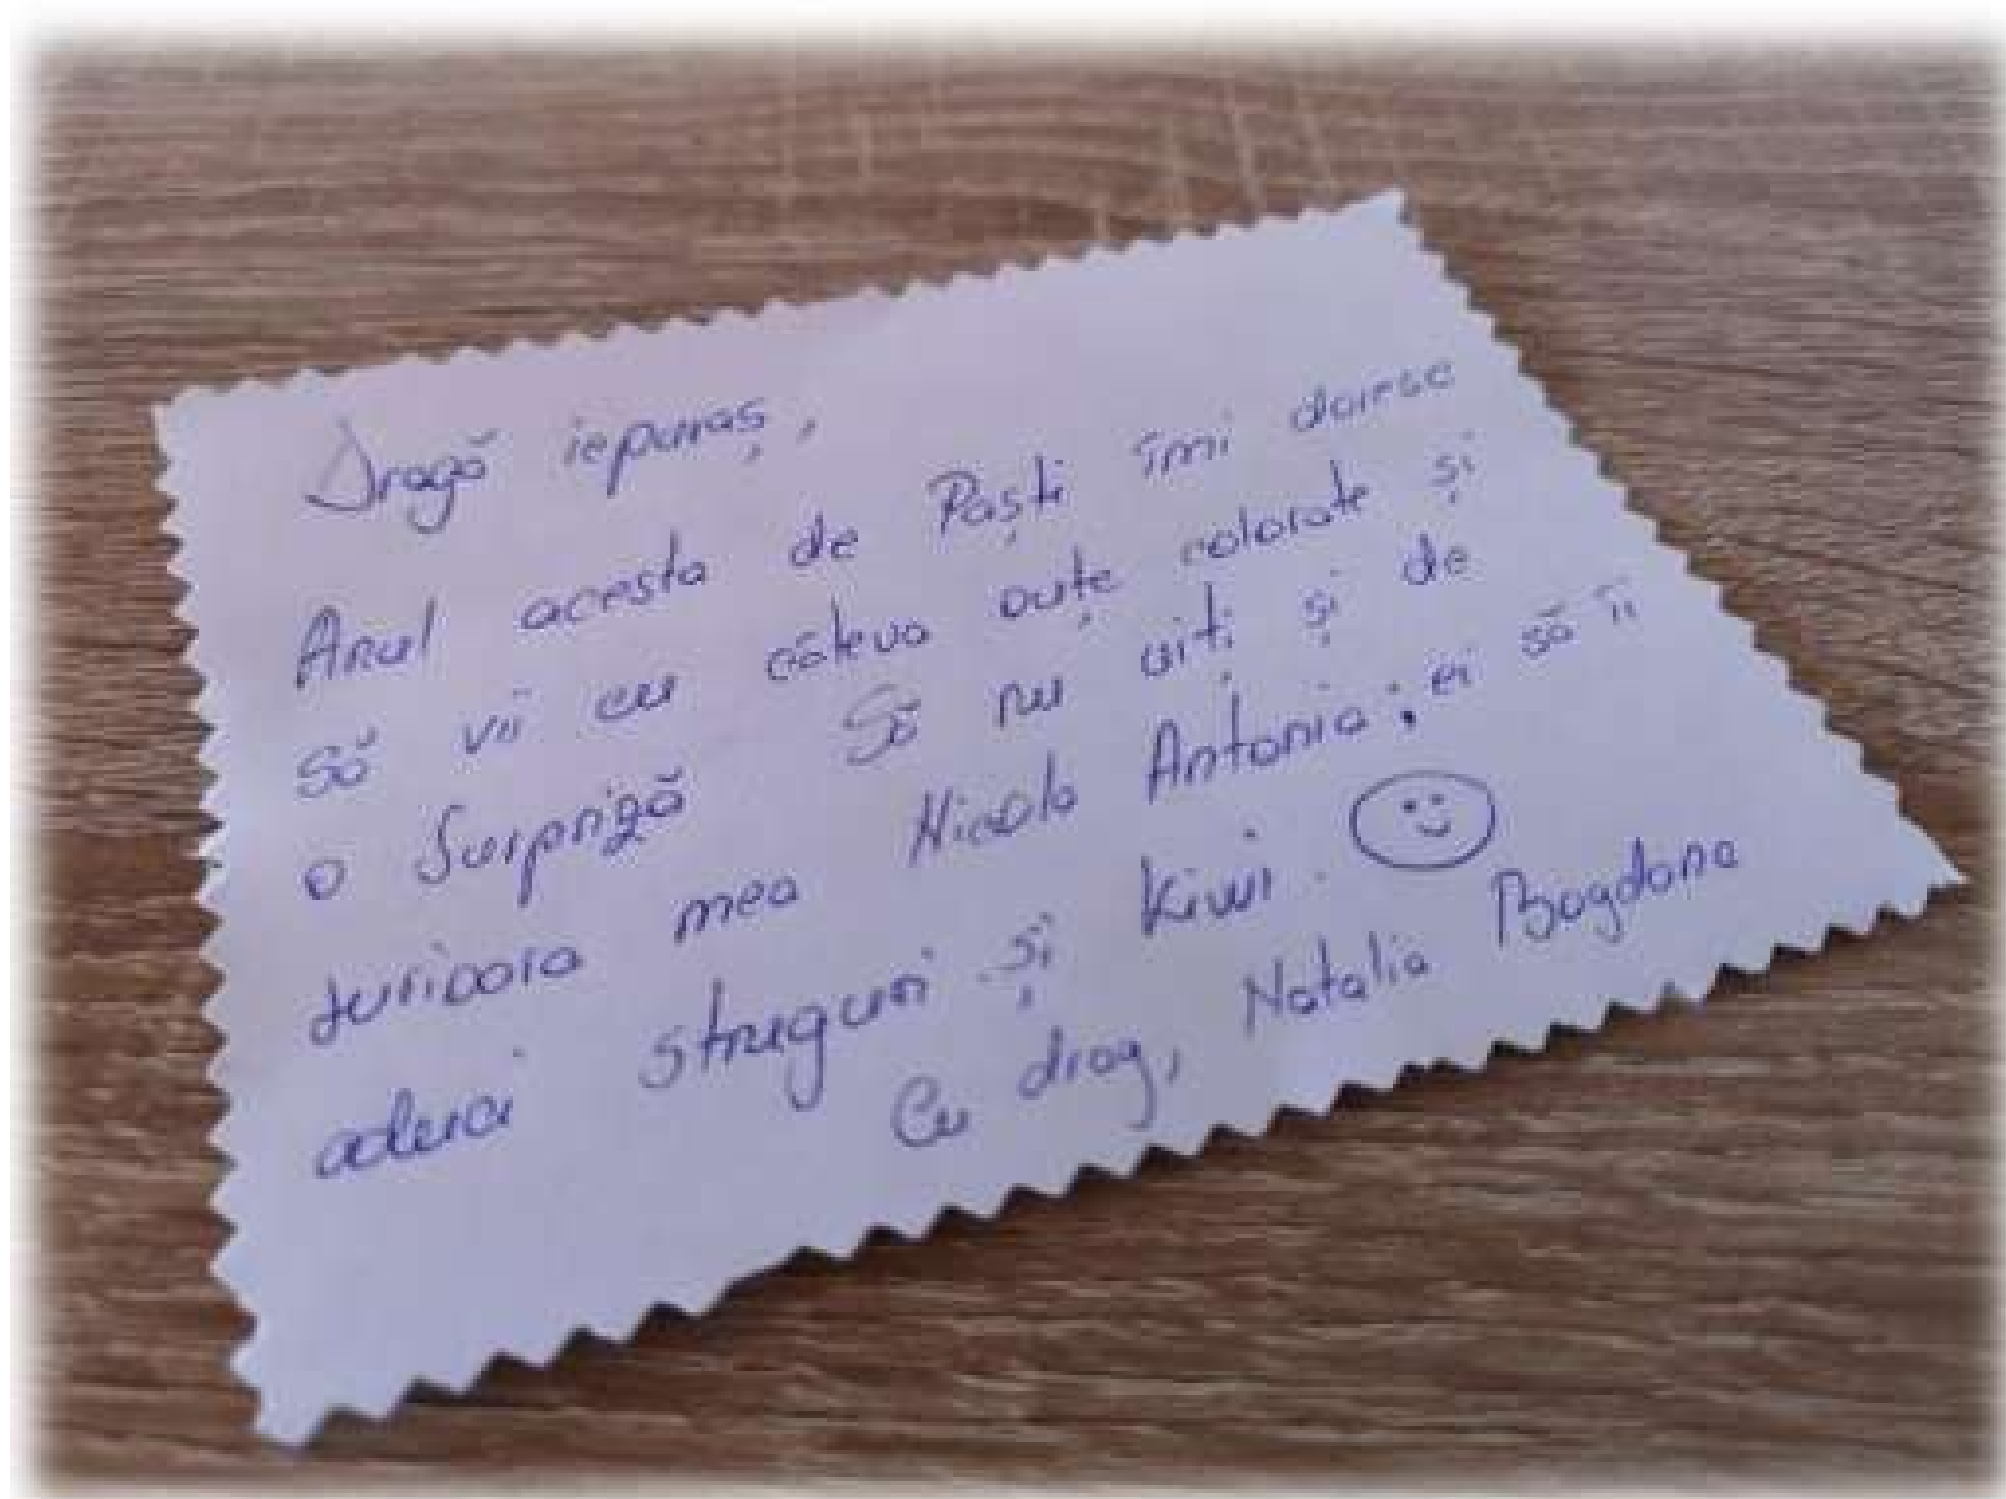 Dragă iepuraș,
Anul acesta de Paști îmi doresc
Să vii cu câteva ouțe colorate și
o Surpriză Să nu uiți și de
surioara mea Nicola Antonia; ei să îi
aduci struguri și kiwi.
Cu drag, Natalia Bogdana